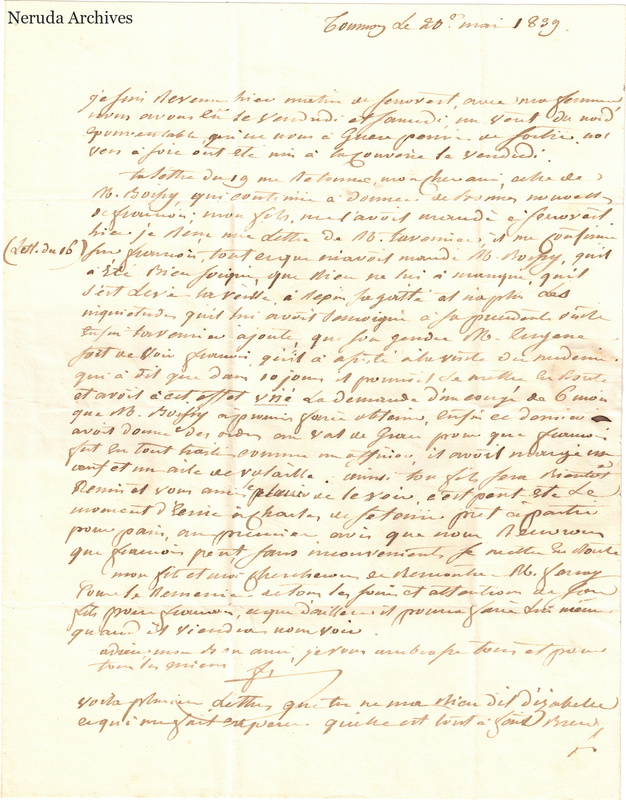 Neruda Archives
Le 20 mai 1839.
je suis Revenu hier matin de avec ma femme
nous avons Eu le vendredi et Samedi un vent du nord
Epouventable qui ne nous à Guere permis de Sortir. nos
vers à soie ont été mis à la le vendredi.
ta lettre du 19 me mon cher ami, celle de
M. Boissy, qui continue a donner de bonnes nouvelles
de francois; mon fils, me l'avoit mandé à
hier je une Lettre de M. tavernier, il me Confirme
(Lett. du 16)
sur francois, tout ce que m'avoit mandé M. Boissy, qu'il
à Eté Bien Soigné, que Rien ne lui à manqué, qu'il
s'est Levé la veille, à et n'a plus Les
inquietudes qu'il lui avoit temoigné à sa precedente
tavernier ajoute, que son gendre M. Eugene
de voir francois, qu'il à assisté a la visite du medecin
qui à dit que dans 10 jours il pourroit Se mettre En Route
et avoit à cet effet La demande d'un congé de 6 mois
que M. Boissy à promis faire obtenir, Enfin ce dernier
avoit donné des ordres au val de Grace pour que francois
fut En tout traité comme un officier, il avoit mangé un
oeuf et une aile de volaille. ainsi ton fils sera Bientôt
Remis et vous aurez le plaisir de le voir, c'est peut Etre Le
moment d'Ecrire à Charles de Se tenir prêt a partir
pour paris, au premier avis que nous Recevrons
que francois peut sans inconvenient Se mettre En Route
mon fils et moi chercherons de Rencontrer M.
pour le Remercier de tous les soins et attentions de son
fils pour francois, ce que d'ailleurs il pourra faire Lui même
quand il viendra nous voir.
adieu mon ami, je vous embrasse tous et pour
tous les miens
voila plusieurs Lettres que tu ne m'a Rien dit d'izabelle
ce qui me fait esperer qu'elle est tout à fait Bien